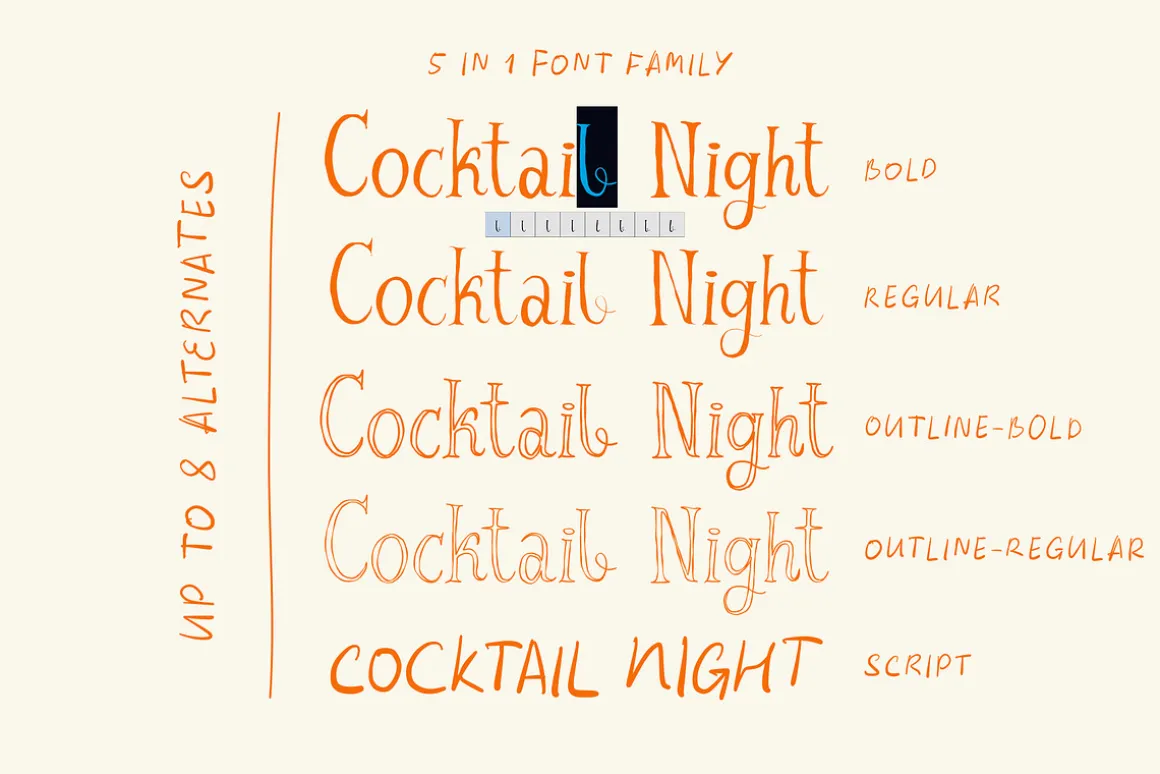 5 IN 1 FONT FAMILY
UP TO 8 ALTERNATES
Cocktail Night BOLD
l l l l l l l l
Cocktail Night REGULAR
Cocktail Night OUTLINE-BOLD
Cocktail Night OUTLINE-REGULAR
COCKTAIL NIGHT SCRIPT